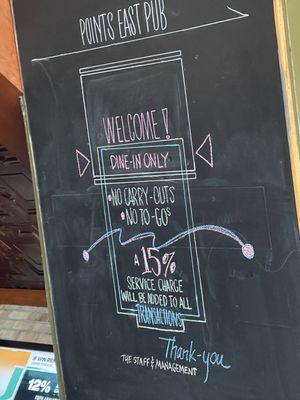 POINTS EAST PUB
WELCOME!
DINE-IN ONLY
•NO CARRY-OUTS
•NO TO-GOS
A 15%
SERVICE CHARGE
WILL BE ADDED TO ALL
TRANSACTIONS
Thank-you
THE STAFF & MANAGEMENT
12%